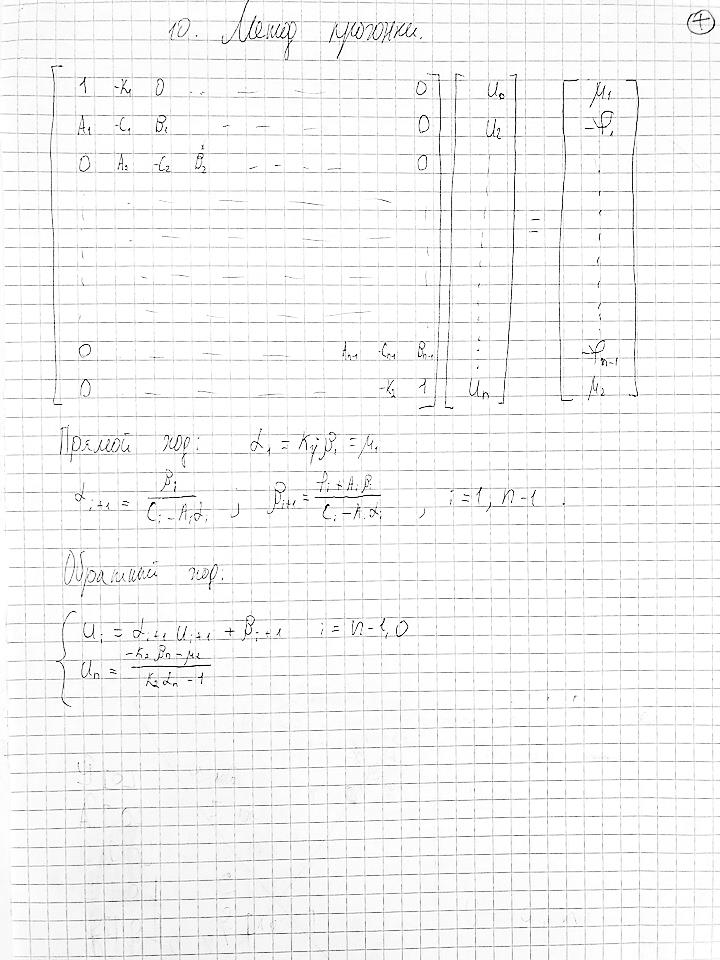 10. Метод прогонки. 7
1 -K₁ 0 .. — — — 0 U₀ μ₁
A₁ -C₁ B₁ - — — 0 U₂ -φ₁
0 A₂ -C₂ B₂ — - - - 0
=
0 — — — — Aₙ₋₁ -Cₙ₋₁ Bₙ₋₁ -φₙ₋₁
0 — — — — -K₂ 1 Uₙ μ₂
Прямой ход: α₁ = K₁; β₁ = μ₁
αᵢ₊₁ = Bᵢ / (Cᵢ - Aᵢαᵢ) ; βᵢ₊₁ = (φᵢ + Aᵢβᵢ) / (Cᵢ - Aᵢαᵢ) , i = 1, n-1 .
Обратный ход.
Uᵢ = αᵢ₊₁ Uᵢ₊₁ + βᵢ₊₁ i = n-1, 0
Uₙ = (-K₂ βₙ - μ₂) / (K₂ αₙ - 1)